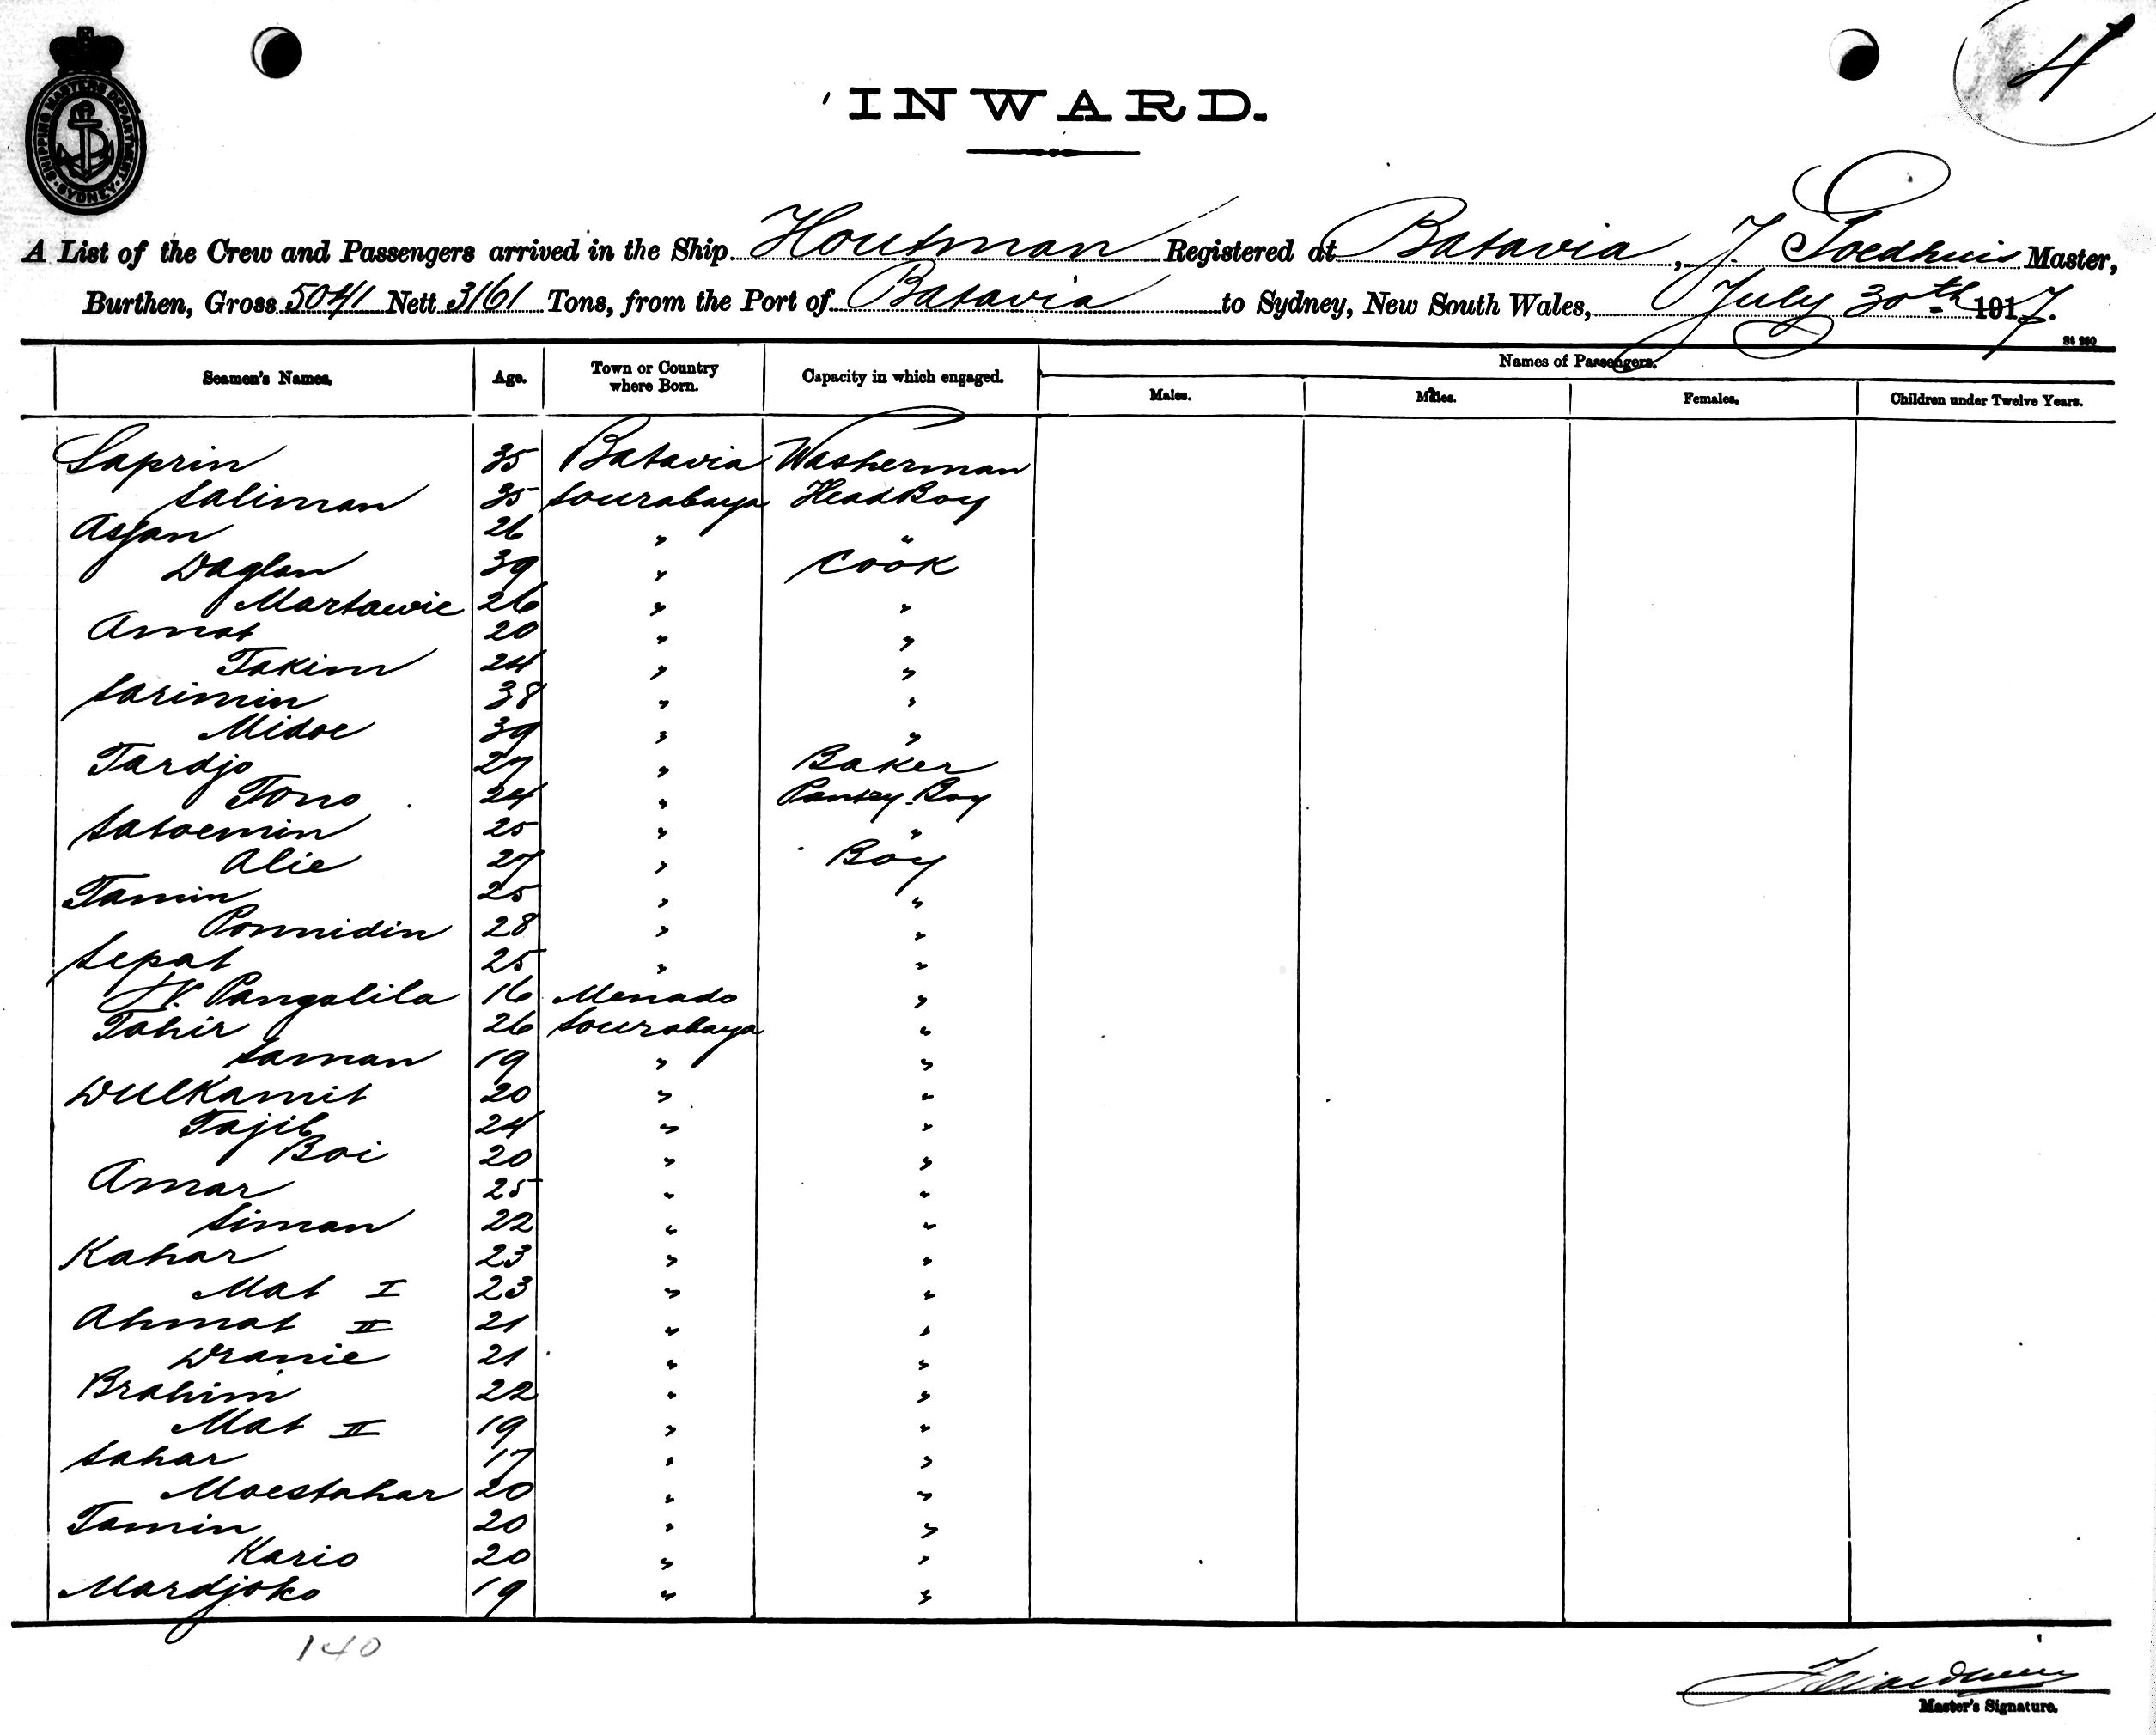 SHIPPING MASTERS DEPARTMENT
SYDNEY
4
INWARD.
A List of the Crew and Passengers arrived in the Ship Houtman Registered at Batavia, J. Goedhuis Master,
Burthen, Gross 5041 Nett 3161 Tons, from the Port of Batavia to Sydney, New South Wales, July 30th 1917.
St 260
Seamen's Names. Age. Town or Country where Born. Capacity in which engaged. Names of Passengers.
Males. Males. Females. Children under Twelve Years.
Saprin 35 Batavia Washerman
Saliman 35 Sourabaya Head Boy
Asjan 26 " "
Daglan 39 " Cook
Martawie 26 " "
Amat 20 " "
Takim 24 " "
Sarimin 38 " "
Midoe 39 " "
Tardjo 27 " Baker
Tono 24 " Pantry-Boy
Satoemin 25 " "
Alie 27 " Boy
Tamin 25 " "
Ponnidin 28 " "
Sepat 25 " "
Pangalila 16 Menado "
Tahir 26 Sourabaya "
Saman 19 " "
Dulkamit 20 " "
Tajib 24 " "
Boi 20 " "
Amar 25 " "
Siman 22 " "
Kahar 23 " "
Mat I 23 " "
Ahmat II 21 " "
Dranie 21 " "
Brahim 22 " "
Mat II 19 " "
Sahar 17 " "
Moestahar 20 " "
Tamin 20 " "
Kario 20 " "
Mardjoko 19 " "
140
Master's Signature.